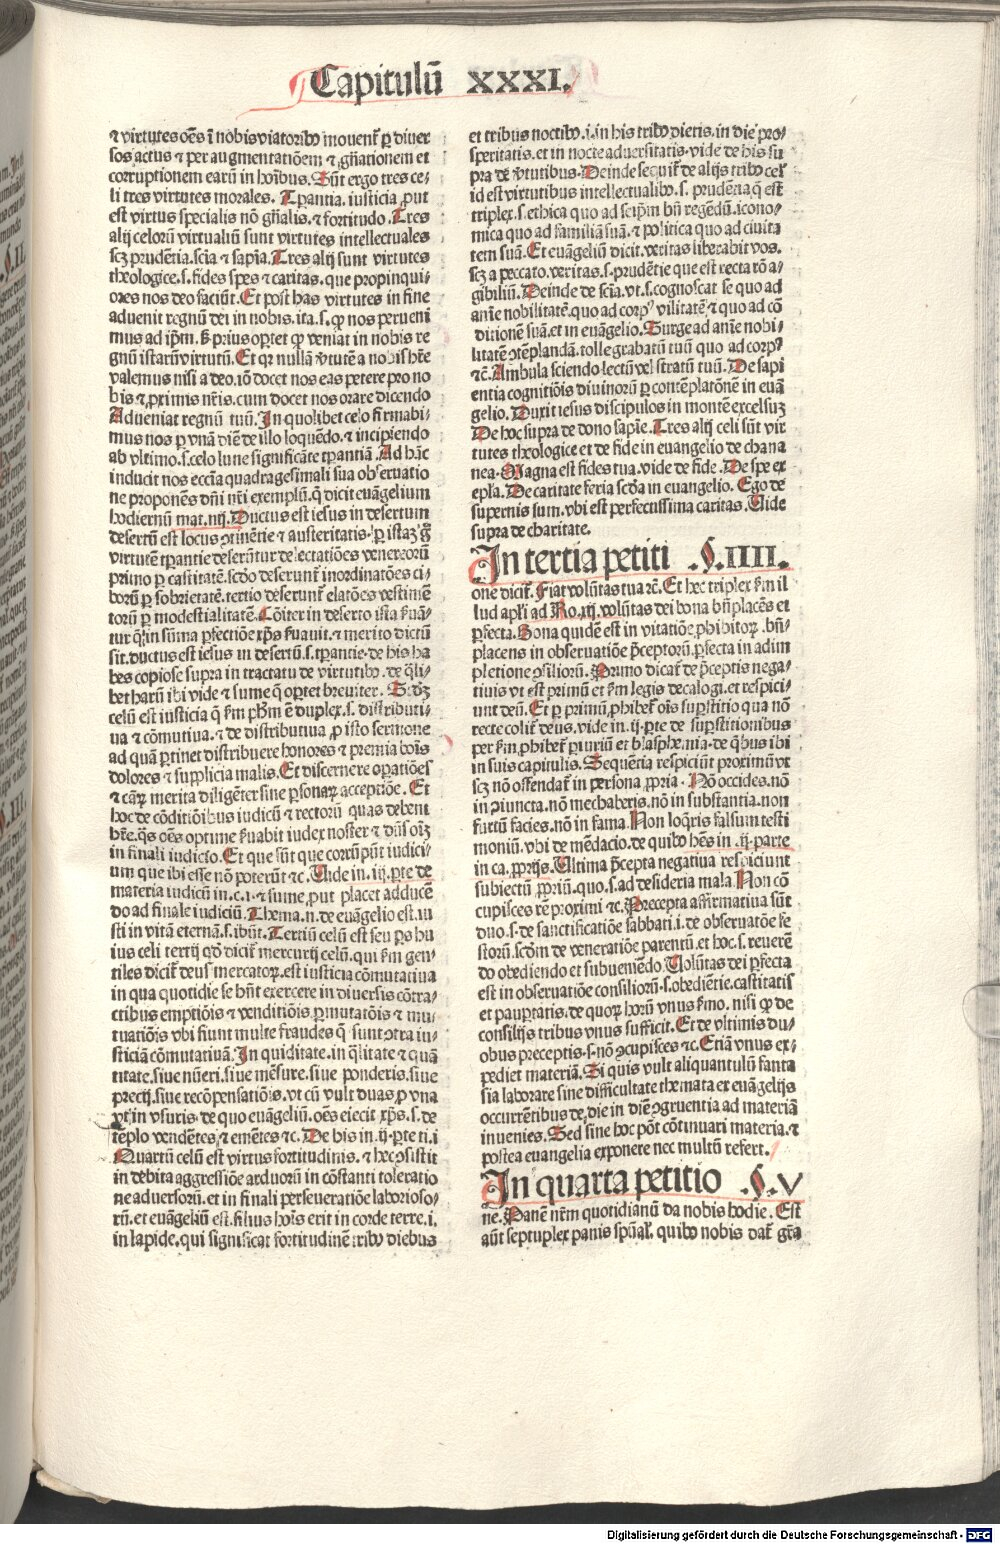 Capitulū XXXI.
⁊ virtutes oēs ī nobis viatoribꝰ mouent᷑ ꝑ diuer
sos actus ⁊ per augmentatiōem ⁊ gn̄ationem et
corruptionem earū in hoībus. Sūt ergo tres ce-
li tres virtutes morales. Tp̄antia. iusticia ꝓut
est virtus specialis nō gn̄alis. ⁊ fortitudo. Tres
alij celorū virtualiū sunt virtutes intellectuales
scꝫ prudētia. scīa ⁊ sapīa. Tres alij sunt virtutes
theologice. s. fides spes ⁊ caritas. que propinqui-
ores nos deo faciūt. Et post has virtutes in fine
adueniet regnū dei in nobis. ita. s. ꝙ nos perueni
mus ad ip̄m. sꝫ prius oꝑtet ꝙ veniat in nobis re
gnū istarū virtutū. Et qꝛ nullā v̄tutē a nobis h̄re
valemus nisi a deo. iō docet nos eas petere pro no
bis ⁊ ꝓximis nr̄is. cum docet nos orare dicendo
Adueniat regnū tuū. In quolibet celo firmabi-
mus nos ꝑ vnā diē de illo loquēdo. ⁊ incipiendo
ab vltimo. s. celo lune significāte tꝑantiā. Ad hāc
inducit nos ecc̄ia quadragesimali sua obseruatio
ne proponēs dn̄i nr̄i exemplū. q̄ dicit euāgelium
hodiernū mat. iiij. Ductus est iesus in desertum
desertū est locus ↄtinētie ⁊ austeritatis. ꝑ istaꝫ g̊
virtutē tꝑantie deserūtur delectatiōes venereorū
primo ꝑ castitatē. scdo deserunt᷑ inordinatōes ci-
borū ꝑ sobrietatē. tertio deserunt᷑ elatōes vestimē
torū ꝑ modestialitatē. Cōiter in deserto ista ẜuā-
tur q̄ lin sūma ꝑfectiōe xp̄s ẜuauit. ⁊ merito dictū
sit. ductus est iesus in desertū. s. tꝑantie. de his ha
bes copiose supra in tractatu de virtutibꝰ. de q̄li-
bet harū ibi vide ⁊ sume q̄ oꝑtet breuiter. Scdꝫ
celū est iusticia q̄ ẜm ph̄m ē duplex. s. distributi-
ua ⁊ cōmutiua. ⁊ de distributiua ꝓ isto sermone
ad quā ꝑtinet distribuere honores ⁊ premia bōis
dolores ⁊ supplicia malis. Et discernere oꝑatiōes
⁊ eaꝝ merita diligēter sine ꝑsonaꝝ acceptiōe. Et
hoc de cōditiōibus iudicū ⁊ rectorū quas debent
h̄re. q̄s oēs optime ẜuabit iudex noster ⁊ dn̄s oīꝫ
in finali iudicio. Et que sūt que corrūpūt iudici-
um que ibi esse nō poterūt ⁊c. Vide in. iij. ꝑte de
materia iudicū in. c. i. ⁊ sume, put placet adducē
do ad finale iudiciū. Thema. n. de euāgelio est. iu
sti in vitā eternā. s. ibūt. Tertiū celū est seu ꝑs hu
ius celi tertij qd̄ dicit᷑ mercurij celū. qui ẜm gen-
tiles dicit᷑ deus mercatoꝝ. est iusticia cōmutatiua
in qua quotidie se hn̄t exercere in diuersis cōtra-
ctibus emptiōis ⁊ venditiōis. ꝑmutatōis ⁊ mu-
tuatiōis vbi fiunt multe fraudes q̄ sunt ↄtra iu-
sticiā cōmutatiuā. In quiditate. in q̄litate ⁊ quā
titate. siue nūeri. siue mēsure. siue ponderis. siue
precij. siue recōpensatiōis. vt cū vult duas ꝓ vna
vt in vsuris. de quo euāgeliū. oēs eiecit xp̄s. s. de
templo vendētes. ⁊ emētes ⁊c. De his in. ij. ꝑte ti. i
Quartū celū est virtus fortitudinis. ⁊ hec ↄsistit
in debita aggressiōe arduorū in cōstanti toleratio
ne aduersorū. et in finali perseueratiōe laborioso-
rū. et euāgeliū est. filius hoīs erit in corde terre. i.
in lapide. qui significat fortitudinē tribꝰ diebus
et tribus noctibꝰ. i. in his tribꝰ dietis. in die pro-
speritatis. et in nocte aduersitatis. vide de his su
pra de v̄tutibus. Deinde sequit᷑ de alijs tribꝰ cel᷑
id est virtutibus intellectualibꝰ. s. prudētia q̄ est
triplex. s. ethica quo ad seip̄m bn̄ regēdū. icono-
mica quo ad familiā suā. ⁊ politica quo ad ciuita
tem suā. Et euāgeliū dicit. veritas liberabit vos.
scꝫ a peccato. veritas. s. prudētie que est recta rō a-
gibiliū. Deinde de scīa. vt. s. cognoscat se quo ad
anīe nobilitatē. quo ad corpꝰ vilitatē ⁊ quo ad cō
ditionē suā. et in euāgelio. Surge ad anīe nobi-
litatē ↄtēplandā. tolle grabatū tuū quo ad corpꝰ
⁊c. Ambula sciendo lectū vel stratū tuū. De sapi
entia cognitiōis diuinorū ꝑ contēplatōnē in euā
gelio. Duxit iesus discipulos in montē excelsuꝫ
De hoc supra de dono sapīe. Tres alij celi sūt vir
tutes theologice et de fide in euangelio de chana
nea. Magna est fides tua. vide de fide. De spe ex
ep̄la. De caritate feria scd̄a in euangelio. Ego de
supernis sum. vbi est perfectissima caritas. Vide
supra de charitate.
In tertia petiti .§. IIII.
one dicit᷑. Fiat volūtas tua ⁊c. Et hec triplex ẜm il
lud apl̄i ad Ro. xij. volūtas dei bona bn̄placēs et
ꝑfecta. Bona quidē est in vitatiōe ꝓhibitoꝝ. bn̄-
placens in obseruatiōe p̄ceptorū. ꝑfecta in adim
pletione ↄsiliorū. Primo dicat᷑ de p̄ceptis nega-
tiuis vt est primū et ẜm legis decalogi. et respici-
unt deū. Et ꝑ primū ꝓhibet᷑ oīs suꝑstitio qua nō
recte colit᷑ deus. vide in. ij. ꝑte de suꝑstitionibus
per ẜm ꝓhibet᷑ ꝑiuriū et blasphemia. de q̄bus ibi
in suis capitulis. Sequētia respiciūt proximū vt
scꝫ nō offendat᷑ in persona ꝓpria. Nō occides. nō
in ↄiuncta. nō mechaberis. nō in substantia. non
furtū facies. nō in fama. Non loq̄ris falsum testi
moniū. vbi de mēdacio. de quibꝰ hēs in. ij. parte
in ca. ꝓprijs. Ultima p̄cepta negatiua respiciunt
subiectū ꝓpriū. quo. s. ad desideria mala. Non cō
cupisces rē proximi ⁊c. Precepta affirmatiua sūt
duo. s. de sanctificatiōe sabbati. i. de obseruatōe fe
storū. scd̄m de veneratiōe parentū. et hoc. s. reuerē
do obediendo et subueniēdo. Volūtas dei ꝑfecta
est in obseruatiōe consiliorū. s. obediētie. castitatis
et pauꝑtatis. de quoꝝ horū vnus ẜmo. nisi ꝙ de
consilijs tribus vnus sufficit. Et de vltimis du-
obus preceptis. s. nō ↄcupisces ⁊c. Etiā vnus ex-
pediet materiā. Si quis vult aliquantulū fanta
sia laborare sine difficultate themata ex euāgelijs
occurrētibus de die in diem ↄgruentia ad materiā
inuenies. Sed sine hoc pōt cōtinuari materia. ⁊
postea euangelia exponere nec multū refert.
In quarta petitio .§. V
ne. Panē nr̄m quotidianū da nobis hodie. Est
aūt septuplex panis spūal᷑. quibꝰ nobis dat᷑ gr̄a
Digitalisierung gefördert durch die Deutsche Forschungsgemeinschaft - DFG